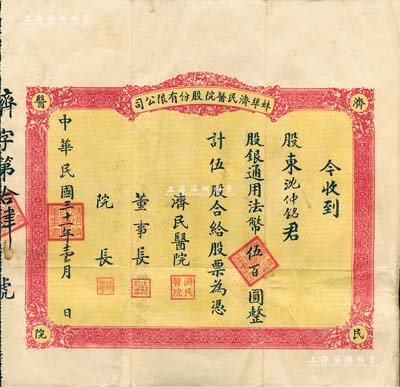 蚌埠濟民醫院股份有限公司
濟
民
醫
院
今收到
股東沈仲銘君
股銀通用法幣伍百圓整
計伍股合給股票為憑
濟民醫院
董事長
院長
濟民醫院
中華民國三十年壹月 日
濟字第拾肆號